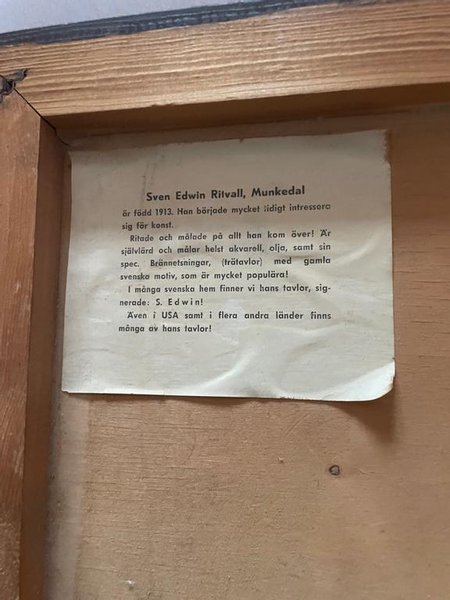 Sven Edwin Ritvall, Munkedal
är född 1913. Han började mycket tidigt intressera
sig för konst.
Ritade och målade på allt han kom över! Är
självlärd och målar helst akvarell, olja, samt sin
spec. Brännetsningar, (trätavlor) med gamla
svenska motiv, som är mycket populära!
I många svenska hem finner vi hans tavlor, sig-
nerade: S. Edwin!
Även i USA samt i flera andra länder finns
många av hans tavlor!